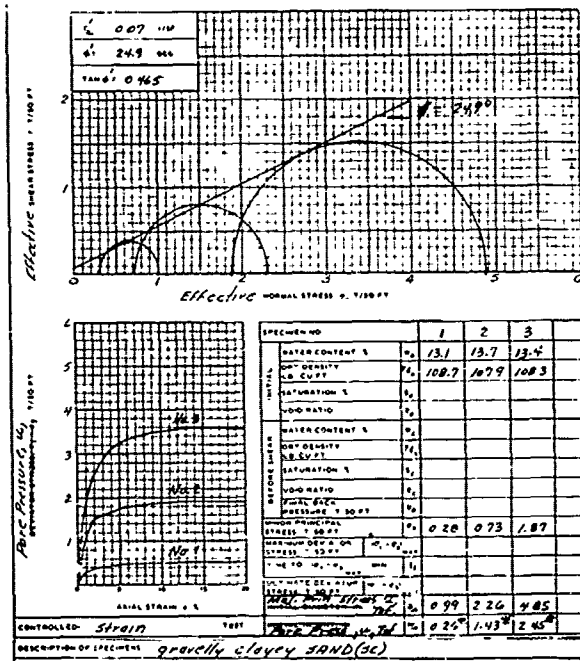 c' 0.07 T/SF
φ' 24.9 DEG
TAN φ' 0.465
φ = 24.9°
Effective SHEAR STRESS τ T/SQ FT
2
1
0
0 1 2 3 4 5 6
Effective NORMAL STRESS σ, T/SQ FT
Pore Pressure, u, T/SQ FT
6
5
4
3
2
1
0
No 3
No 2
No 1
0 5 10 15 20
AXIAL STRAIN ε %
SPECIMEN NO 1 2 3
INITIAL
WATER CONTENT % 13.1 13.7 13.4
DRY DENSITY LB CU FT 108.7 107.9 108.3
SATURATION %
VOID RATIO
BEFORE SHEAR
WATER CONTENT %
DRY DENSITY LB CU FT
SATURATION %
VOID RATIO
FINAL BACK PRESSURE T SQ FT
MINOR PRINCIPAL STRESS T SQ FT 0.28 0.73 1.87
MAXIMUM DEVIATOR STRESS T SQ FT
TIME TO MIN
ULTIMATE DEVIATOR STRESS T SQ FT
Maj. Prin Stress Tsf 0.99 2.26 4.85
Pore Press, u, Tsf 1.43 2.45
CONTROLLED- Strain TEST
DESCRIPTION OF SPECIMENS gravelly clayey SAND (SC)